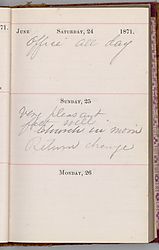 71.
June Saturday, 24 1871.
Office all day
Sunday, 25
Very pleasant
felt well
Church in morn
Return change
Monday, 26